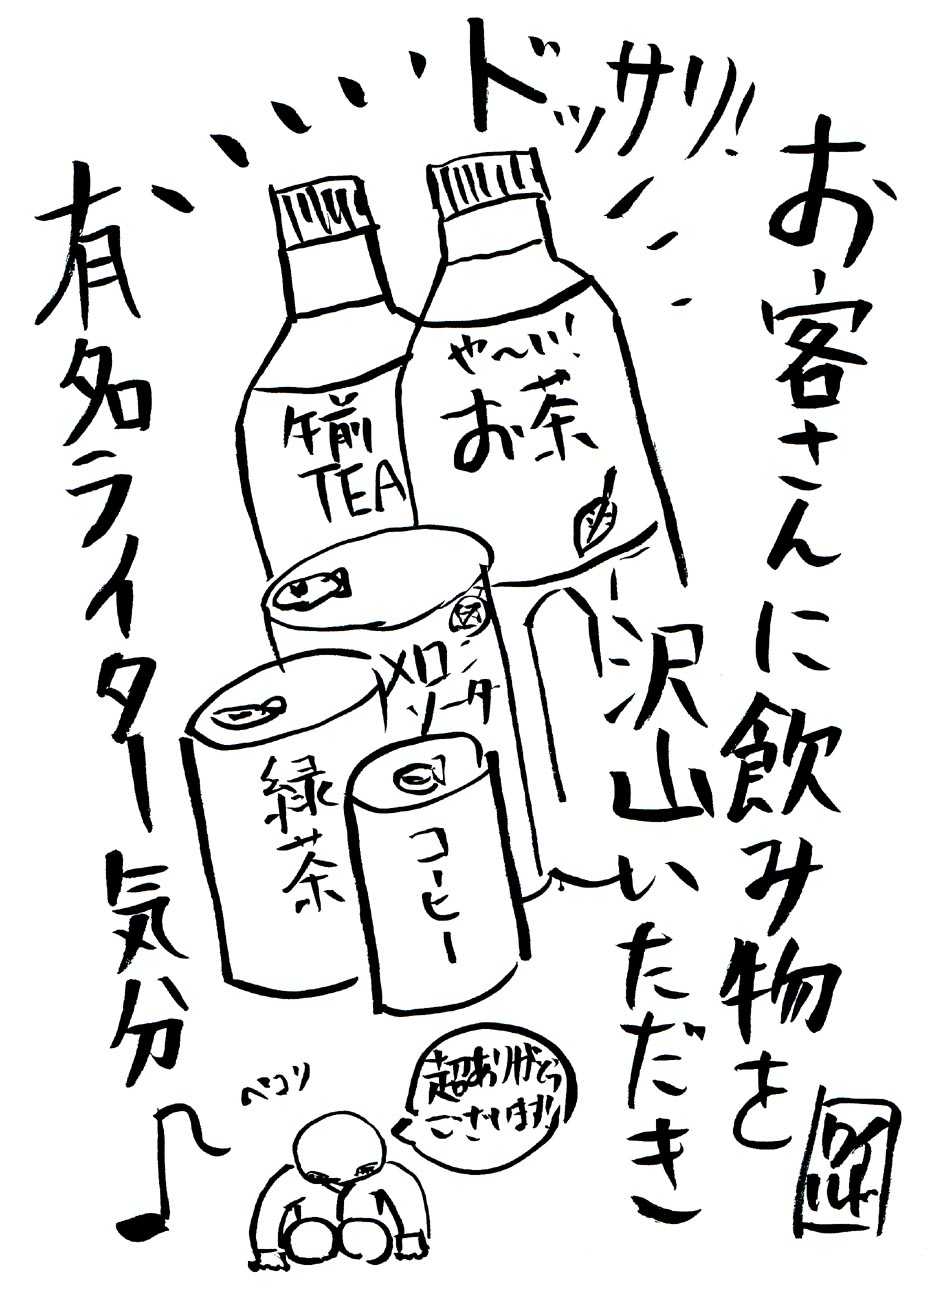 ドッサリ!
お客さんに飲み物を
沢山いただき
有名ライター気分♪
午前
TEA
や〜い!
お茶
メロン
ソーダ
緑茶
コーヒー
ペコリ
超ありがとう
ございます!!
ワイルド